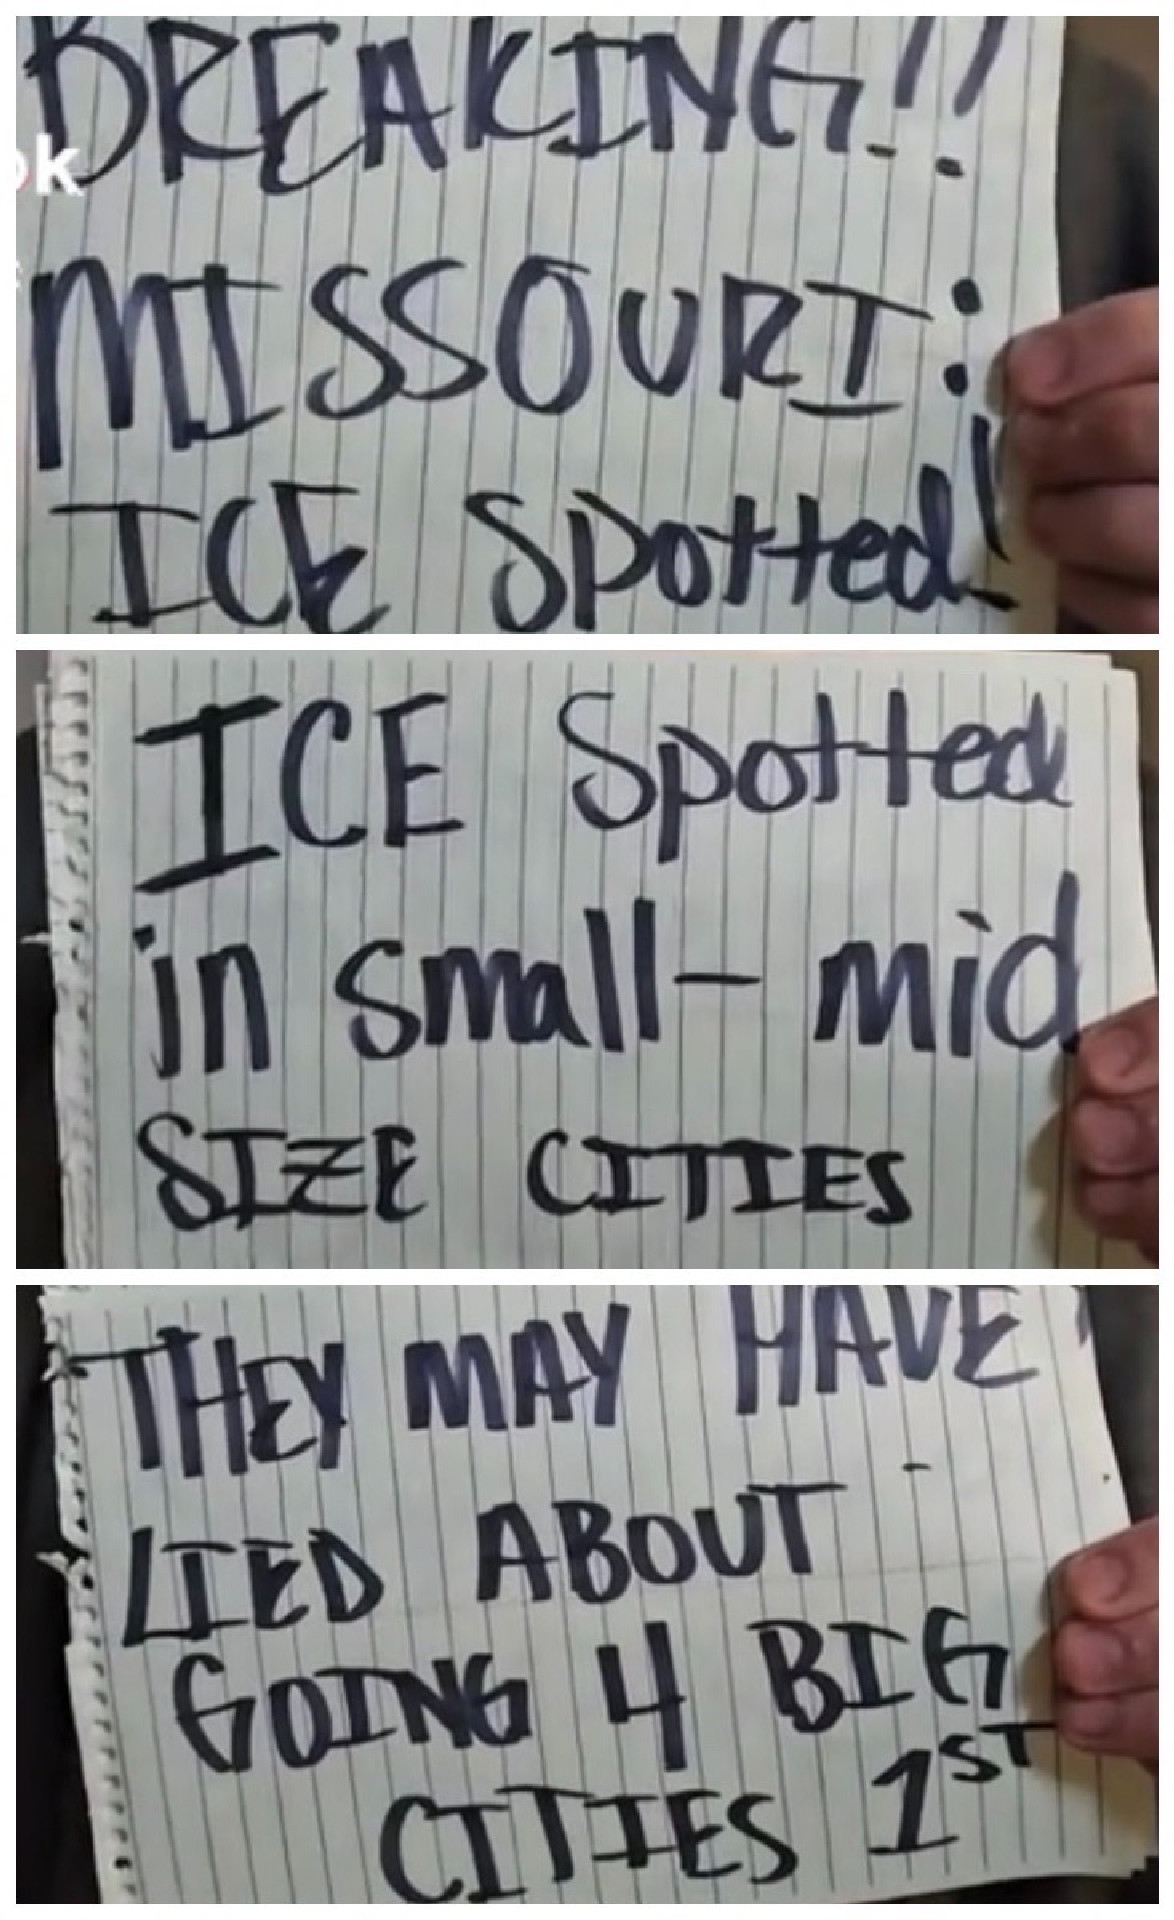 BREAKING!!
ok
MISSOURI:
ICE Spotted!
ICE Spotted
in small- mid
SIZE CITIES
THEY MAY HAVE
LIED ABOUT
GOING 4 BIG
CITIES 1ST